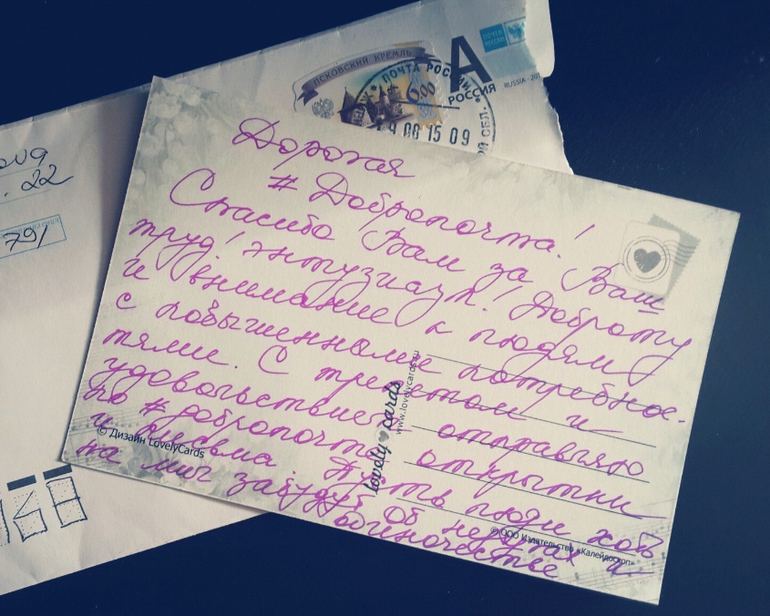 ПСКОВСКИЙ КРЕМЛЬ
6.00
ПОЧТА РОССИИ
А
РОССИЯ
RUSSIA
15 09
22
791
Дорогая
# Добропочта!
Спасибо Вам за Ваш
труд! энтузиазм! Доброту
и внимание к людям
с повышенными потребнос-
тями. С трепетом и
удовольствием отправляю
по #добропочте открытки
и письма. Пусть люди хоть
на миг забудут об недугах и
одиночестве
© Дизайн LovelyCards
lovely cards
www.lovelycards.ru
© ООО Издательство «Калейдоскоп»